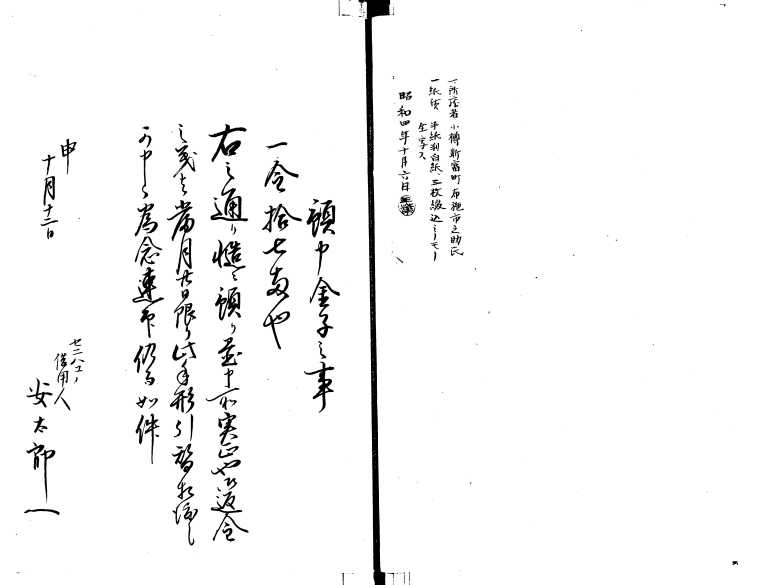 一、所蔵者 小樽新富町 布施市之助氏
一、紙質 半紙判白紙、三枚綴込ミノモノ
全写ス
昭和四年十月六日
預り申金子之事
一金拾七両也
右之通り慥ニ預り置申所実正也 返金
之義者当月廿日限り此手形引替相渡し
可申候為念連印仍而如件
申
十月十二日
セニハコノ
借用人
安太郎